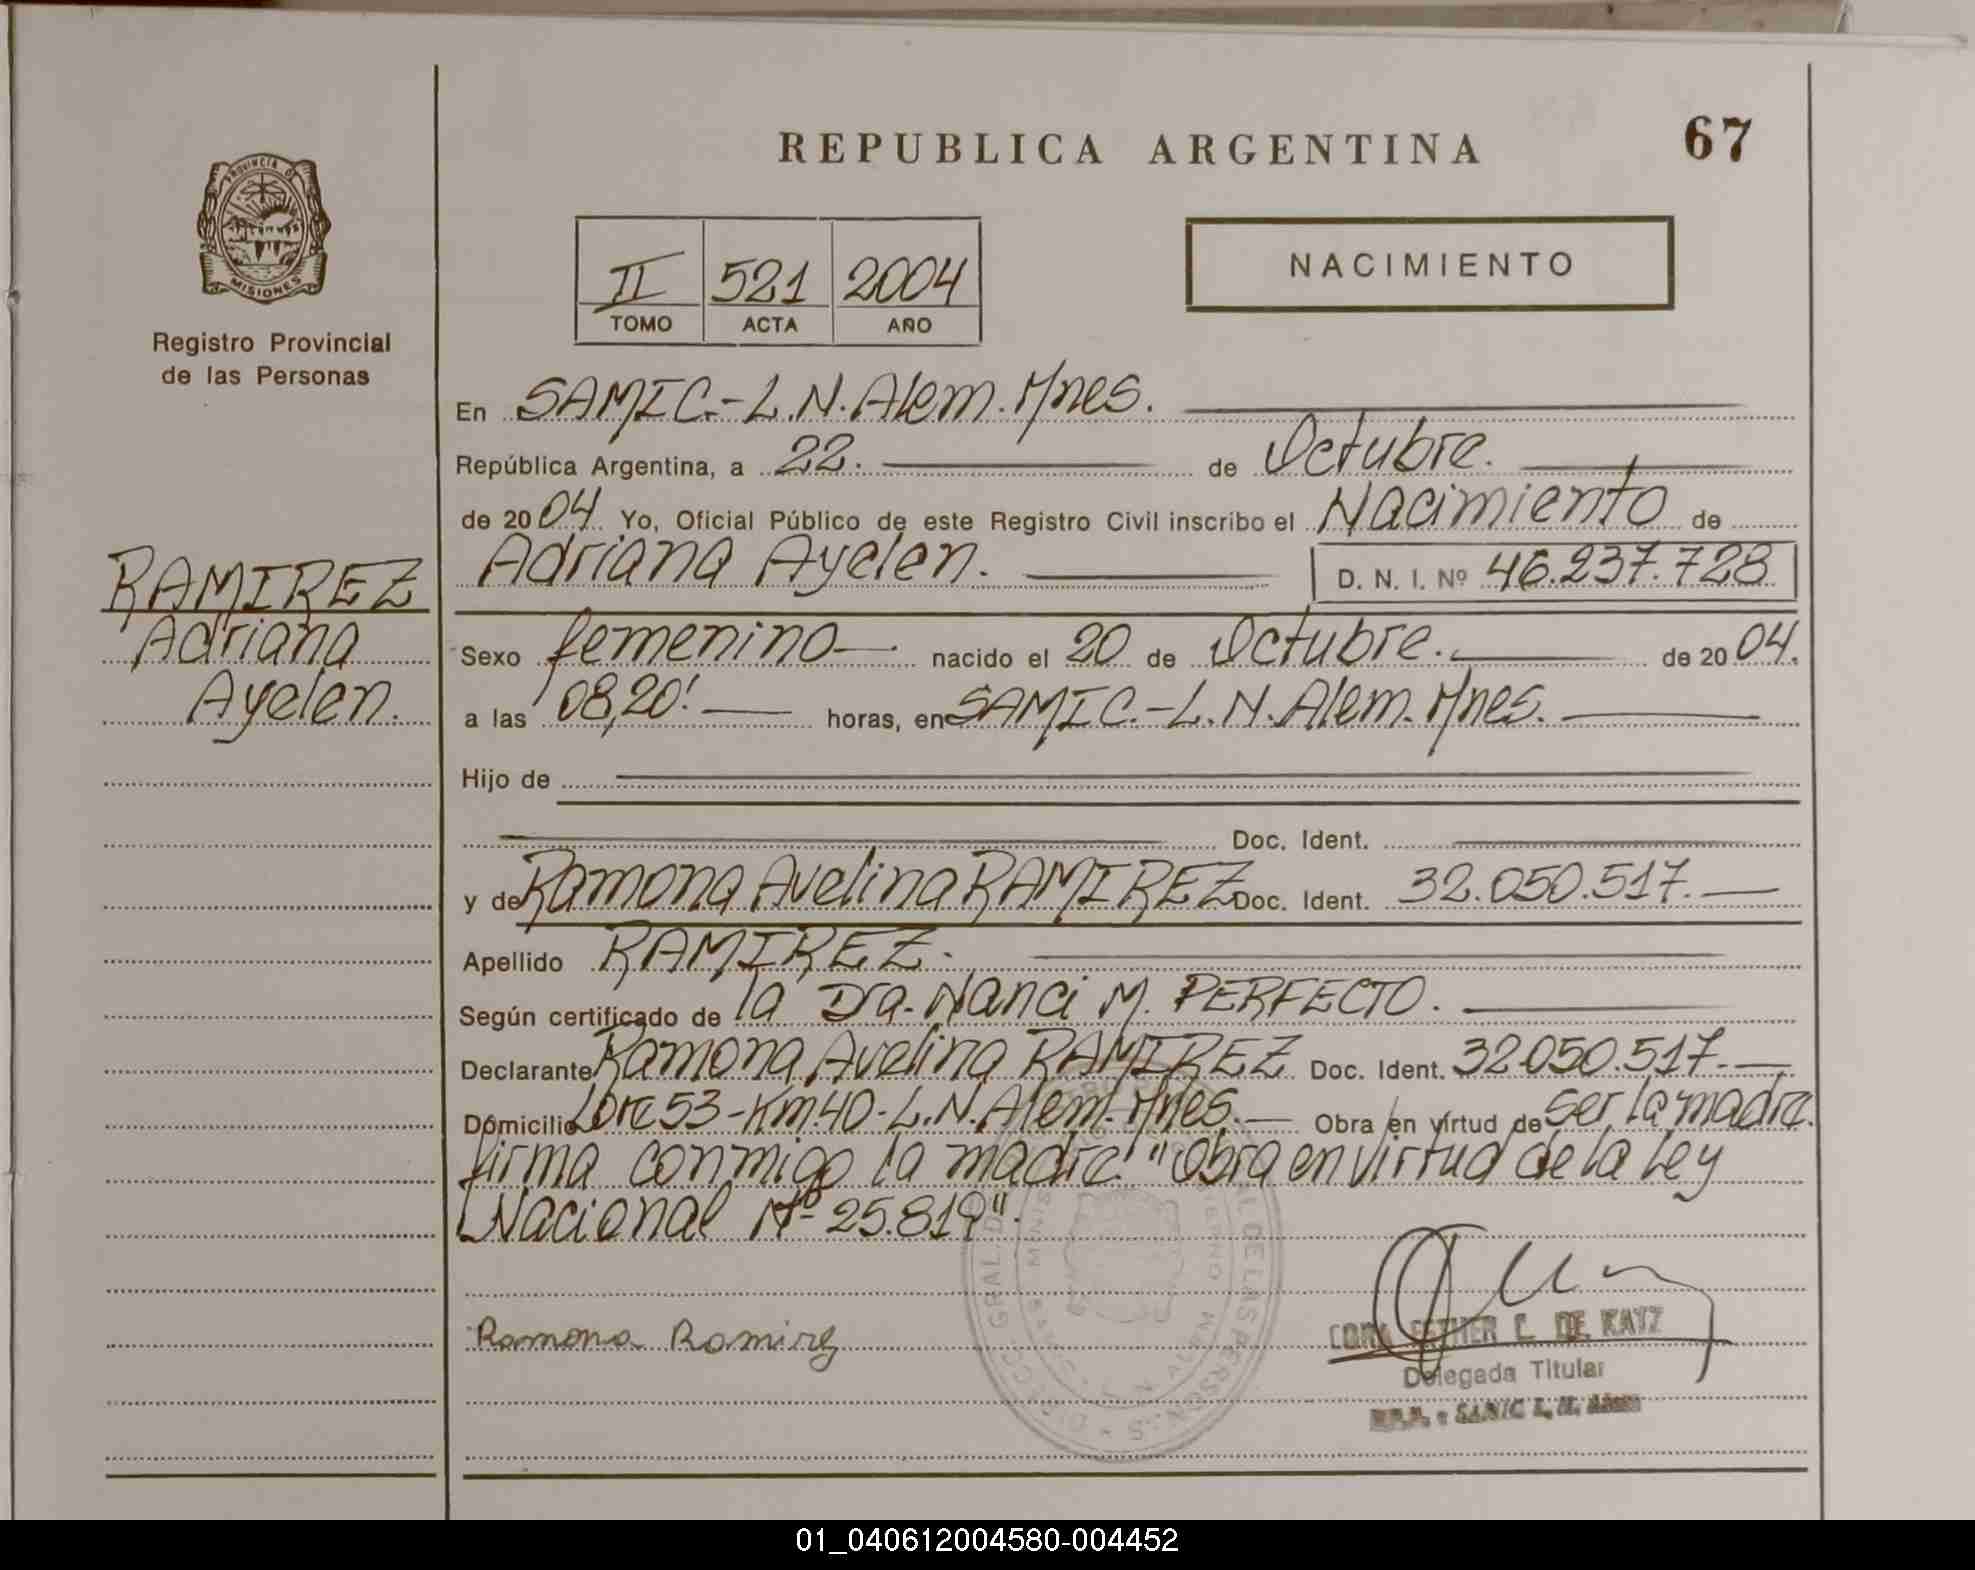 REPUBLICA ARGENTINA
67
PROVINCIA DE
MISIONES
Registro Provincial
de las Personas
NACIMIENTO
II 521 2004
TOMO ACTA AÑO
En SAMIC.-L.N.Alem.Mnes.
República Argentina, a 22. de Octubre.
de 2004 Yo, Oficial Público de este Registro Civil inscribo el Nacimiento de
Adriana Ayelen. D. N. I. Nº 46.237.728
RAMIREZ
Adriana
Ayelen.
Sexo femenino nacido el 20 de Octubre. de 2004.
a las 08,20' horas, en SAMIC.-L.N.Alem.Mnes.
Hijo de
Doc. Ident.
y de Ramona Avelina RAMIREZ Doc. Ident. 32.050.517.
Apellido RAMIREZ.
Según certificado de la Dra. Nanci M. PERFECTO.
Declarante Ramona Avelina RAMIREZ Doc. Ident. 32.050.517.
Domicilio Lote 53-Km.40-L.N.Alem.Mnes. Obra en virtud de ser la madre.
firma conmigo la madre. "Obra en virtud de la Ley
Nacional Nº 25.819".
Ramona Ramirez
ESTHER C. DE KATZ
Delegada Titular
SAMIC L. N. Alem
DE LAS PERSONAS
01_040612004580-004452